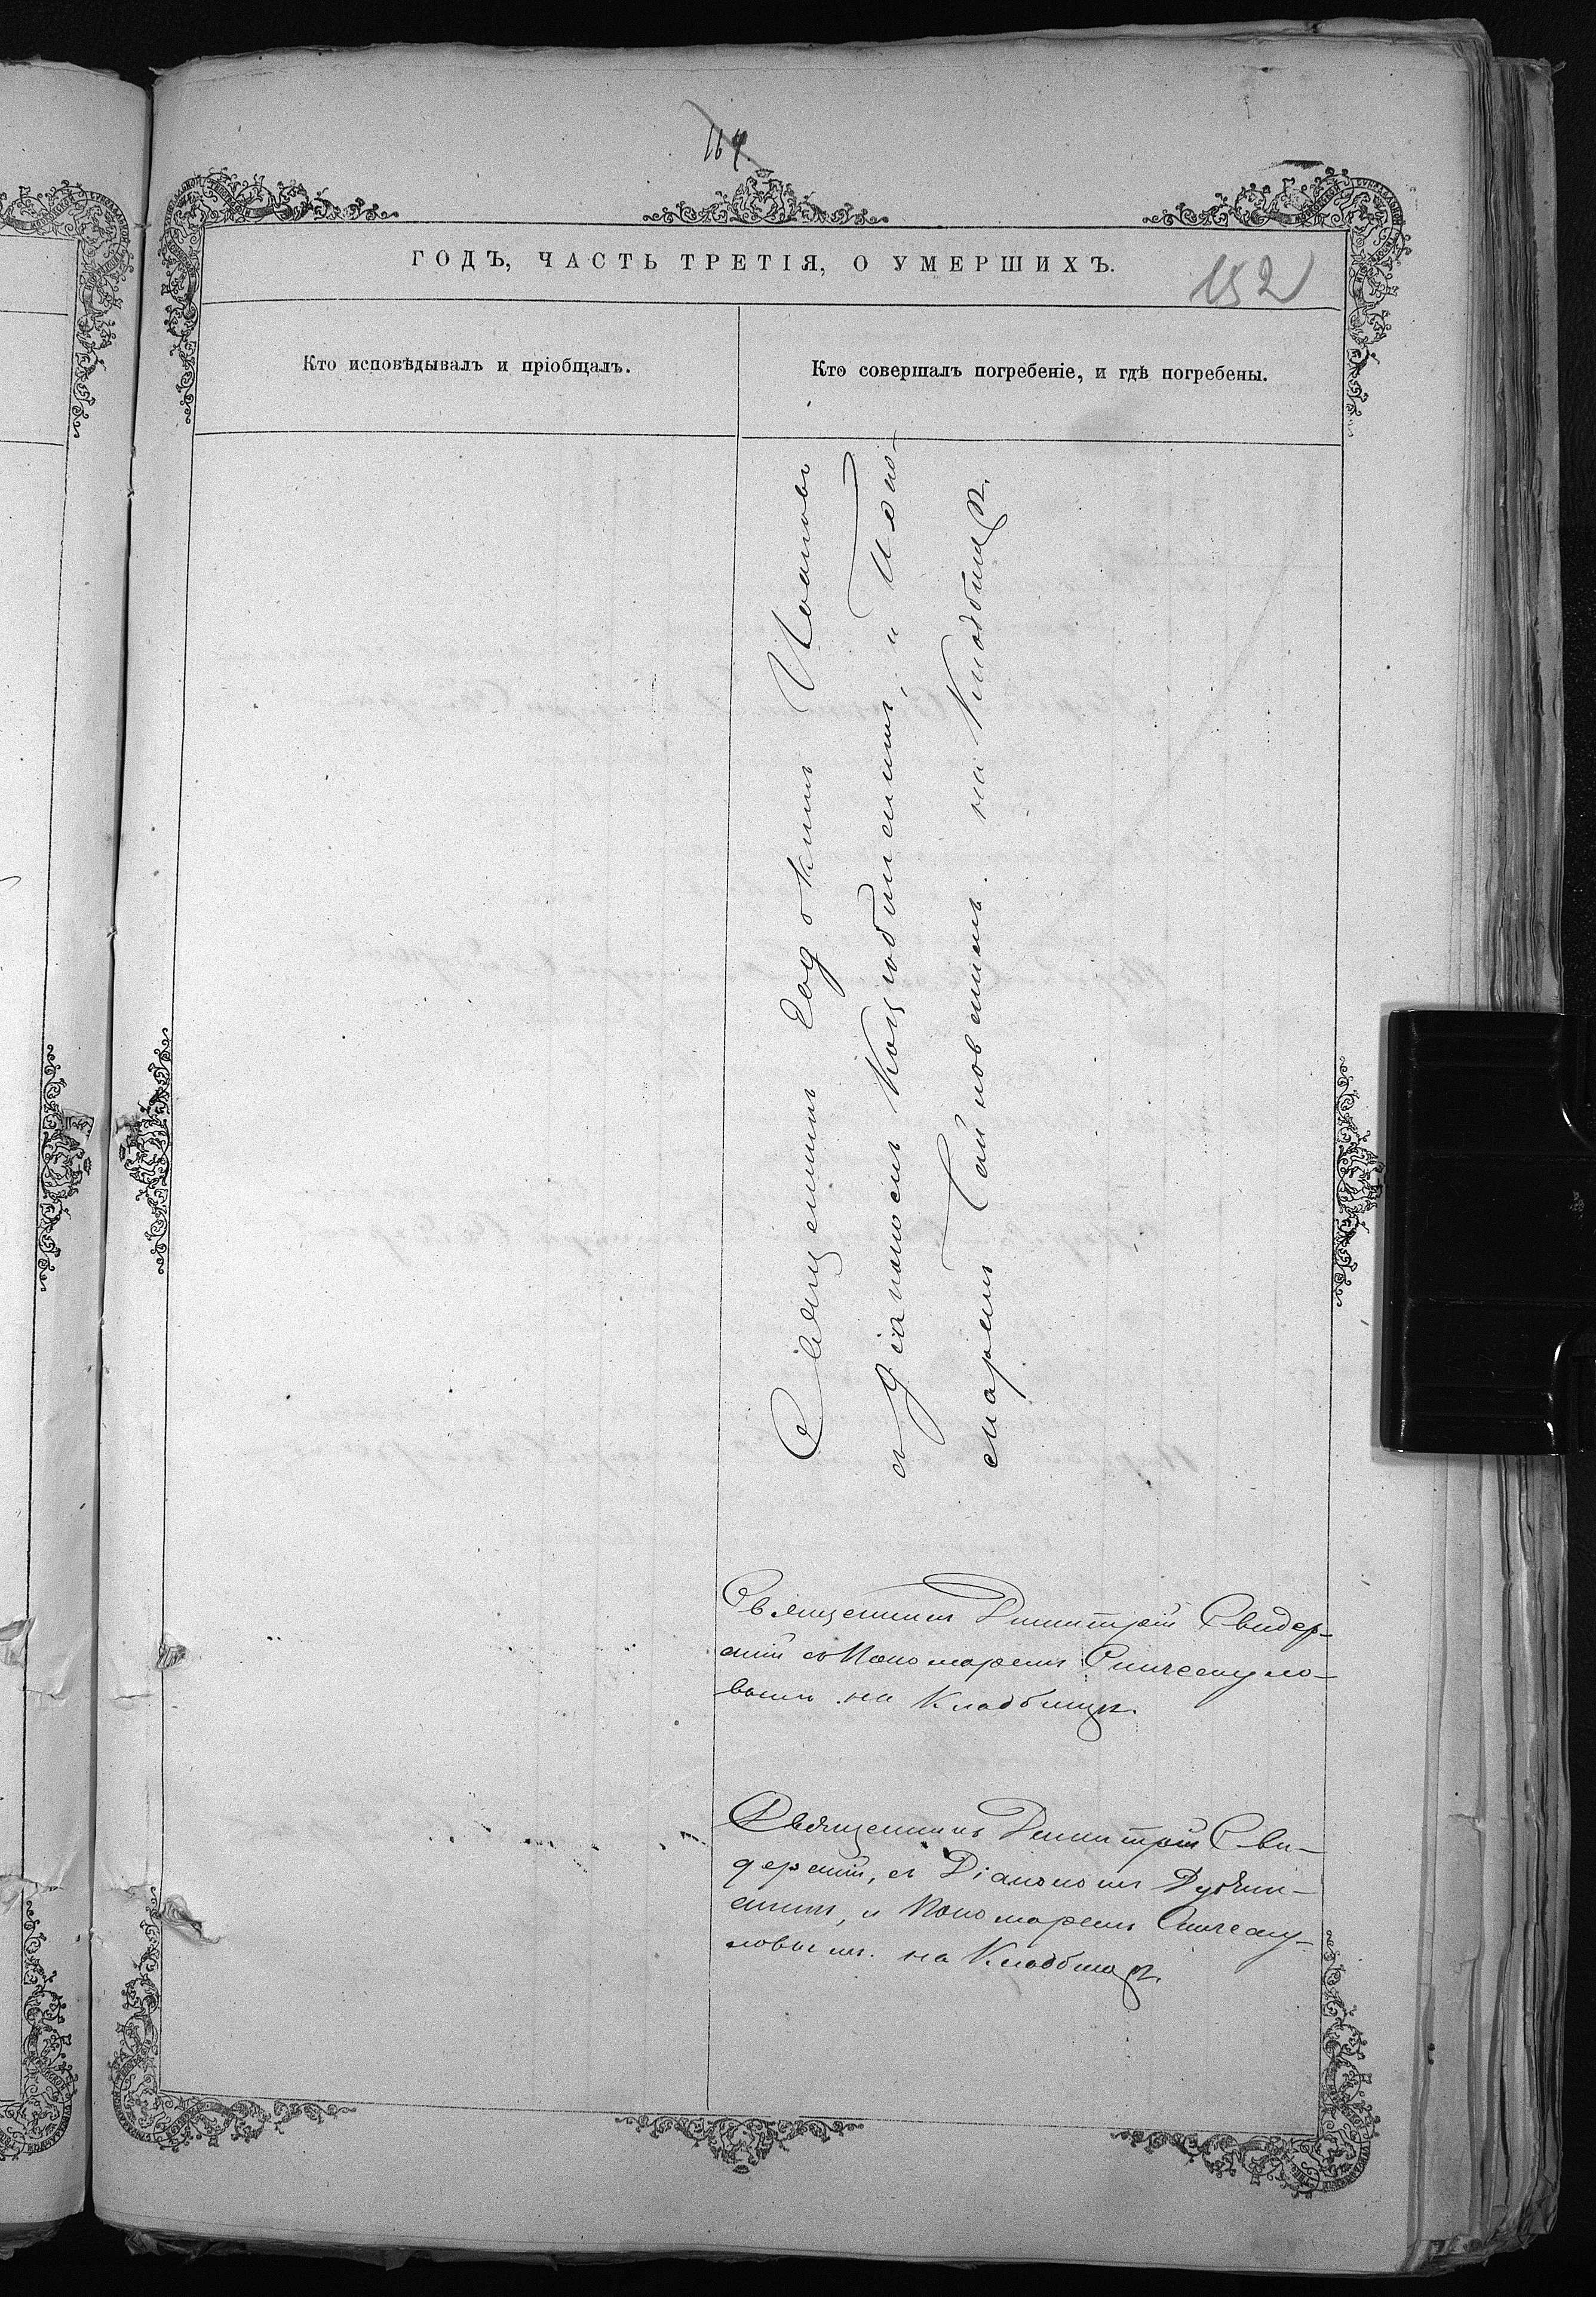 164.
ГОДЪ, ЧАСТЬ ТРЕТІЯ, О УМЕРШИХЪ.
152
Кто исповѣдывалъ и пріобщалъ.
Кто совершалъ погребеніе, и гдѣ погребены.
Священникъ Іоаннъ
съ Діакономъ и Поно-
маремъ на Кладбищѣ.
Священникъ Димитрій Свидер-
скій съ Пономаремъ
вымъ на Кладбищѣ.
Священникъ Димитрій Сви-
дерскій, съ Діакономъ Дубин-
скимъ, и Пономаремъ
ловымъ. на Кладбищѣ.